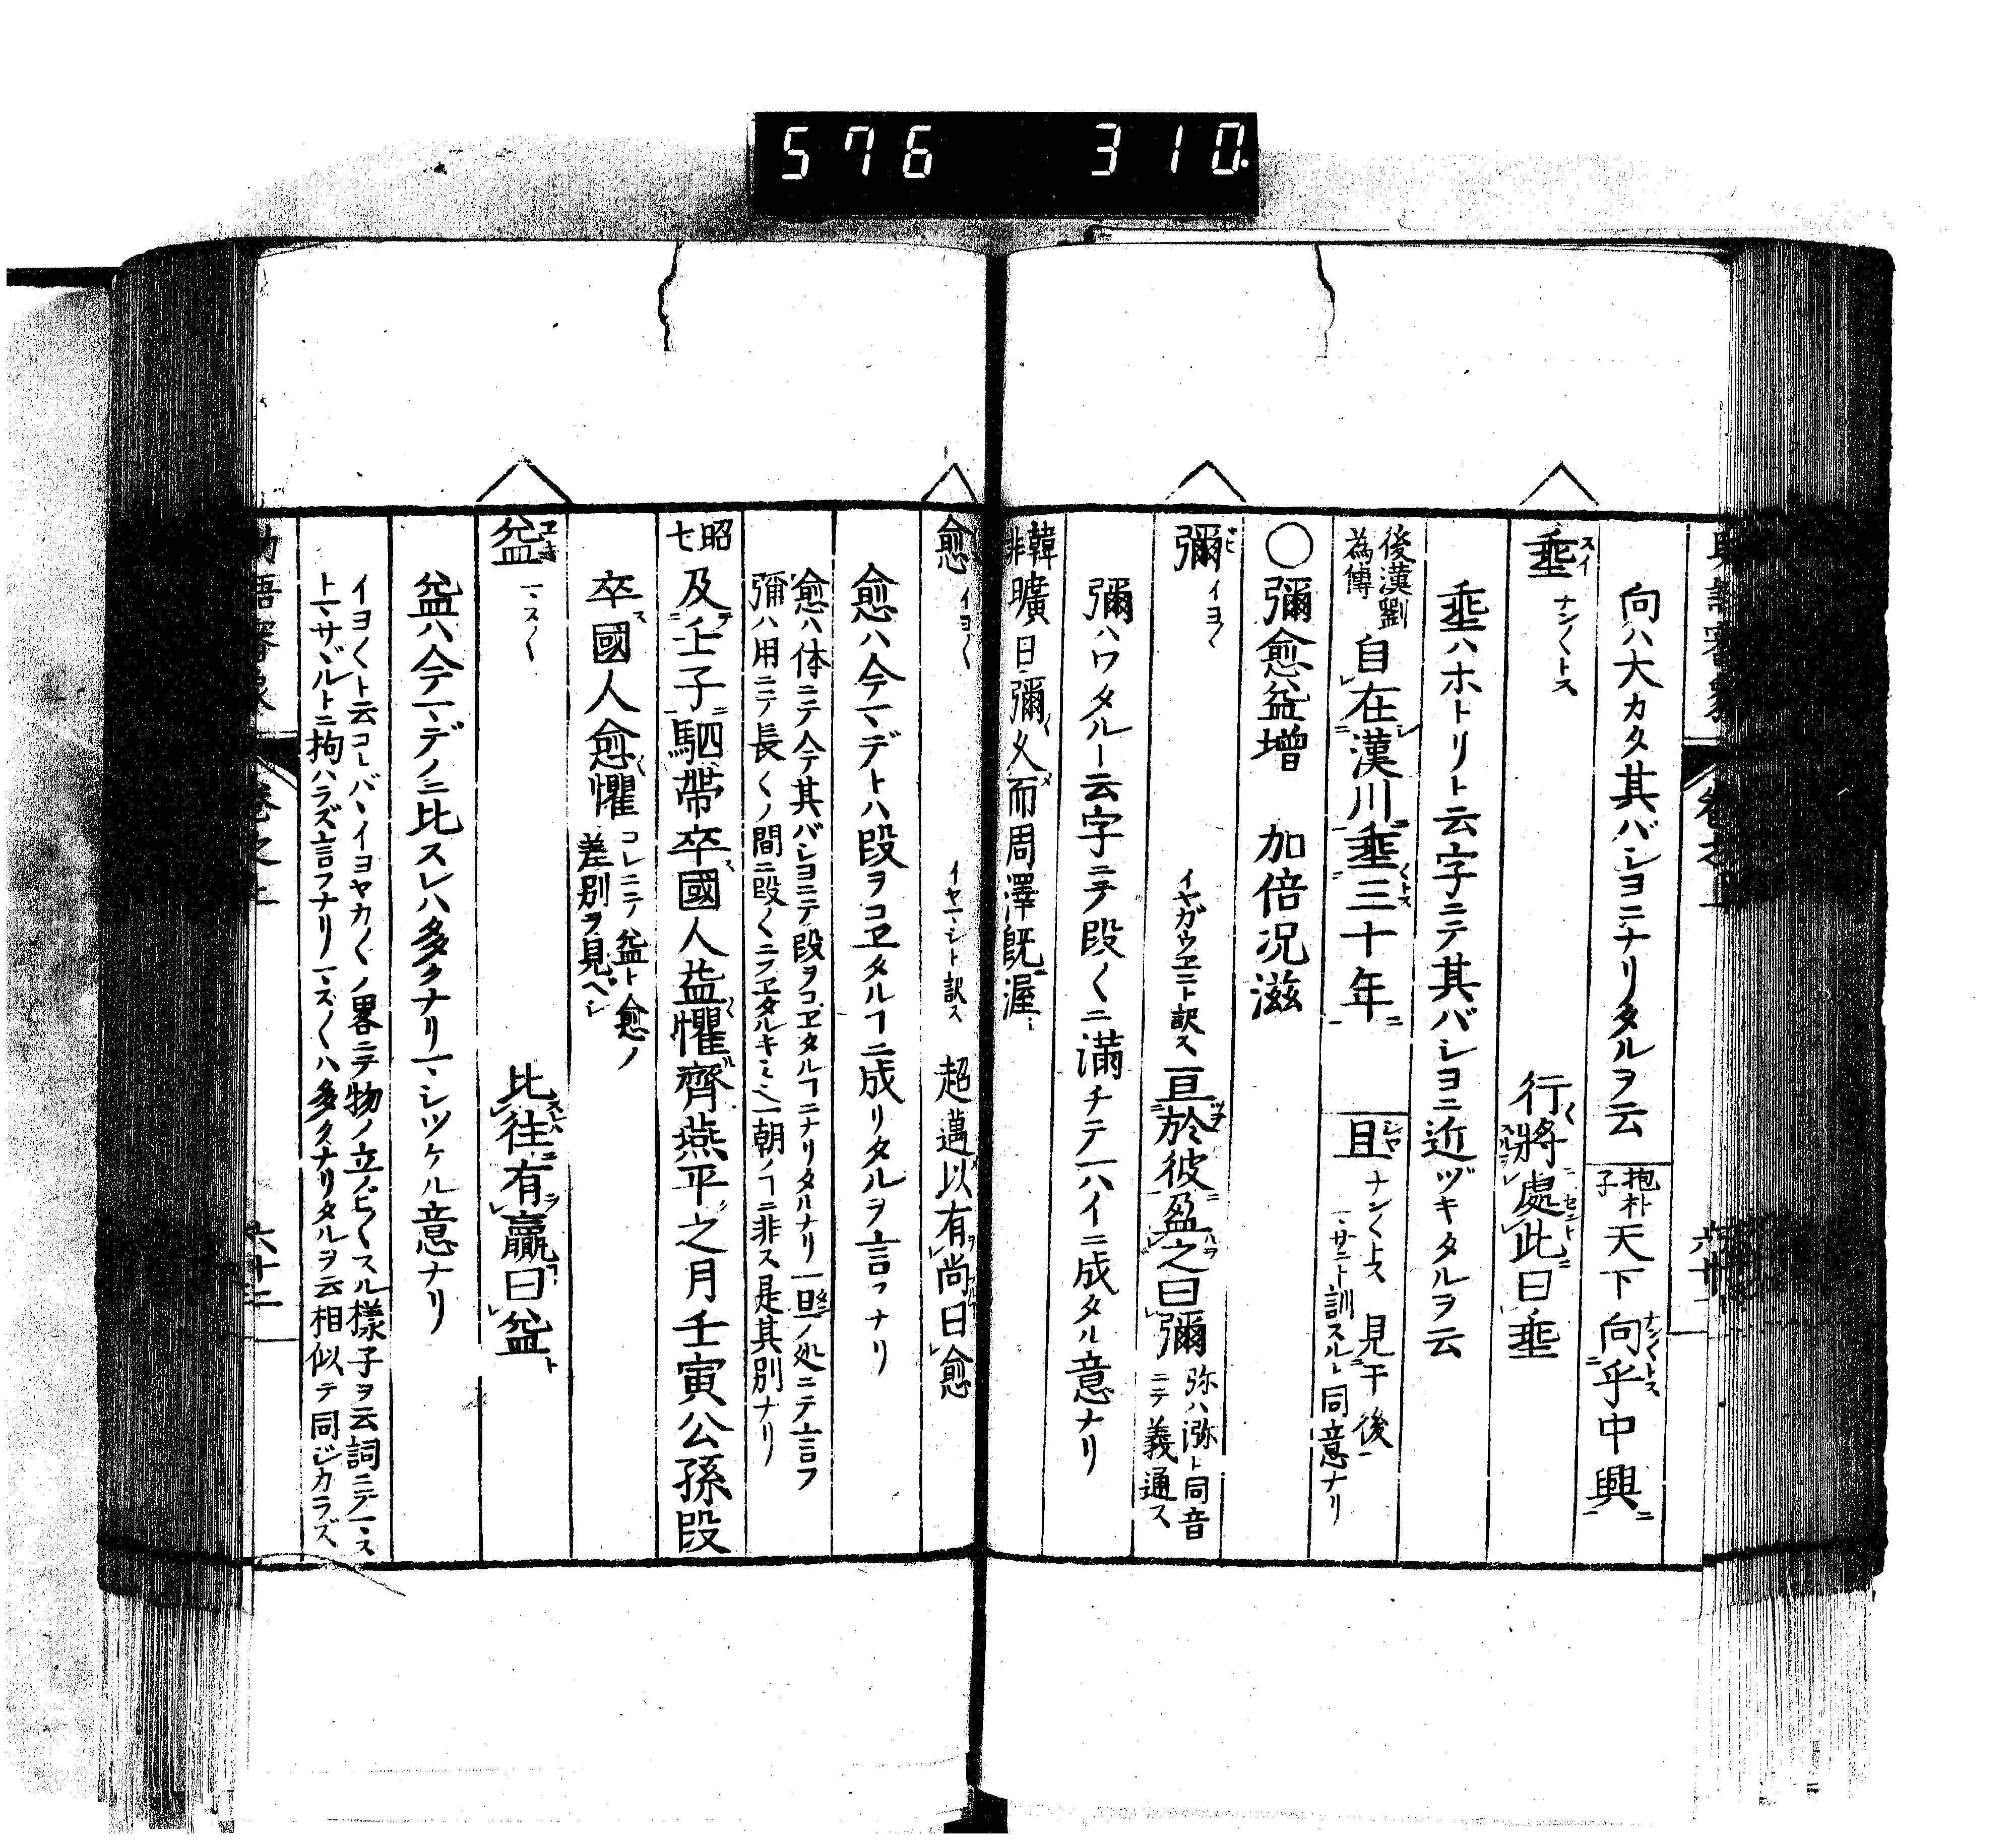 576 310
向ハ大カタ其バシヨニナリタルヲ云 抱朴子 天下向乎中興
垂 スイ ナン〱トス 行將處此曰垂
垂ハホトリト云字ニテ其バシヨニ近ヅキタルヲ云
後漢劉為傳 自在漢川垂三十年 且 ナン〱トス 見于後 マサニト訓スルト同意ナリ
○彌愈益增 加倍況滋
彌 イヨ〱 イヤガウヱニト訳ス 亘於彼盈之曰彌 弥ハ瀰ト同音ニテ義通ス
彌ハワタルト云字ニテ段〱ニ満チテ一ハイニ成タル意ナリ
韓非 曠日彌久而周澤既渥
愈 イヨ〱 イヤマシト訳ス 超邁以有尚曰愈
愈ハ今マデトハ段ヲコヱタルヿニ成リタルヲ言フナリ
愈ハ体ニテ今其バシヨニテ段ヲコヱタルヿニナリタルナリ一旦ノ処ニテ言フ
彌ハ用ニテ長〱ノ間ニ段〱ニフヱタルキミニ一朝ノヿニ非ス是其別ナリ
昭七 及壬子駟帶卒國人益懼齊燕平之月壬寅公孫段
卒國人愈懼 コレニテ益ト愈ノ差別ヲ見ベシ
益 エキ マス〱 比往有贏曰益
益ハ今マデノニ比スレハ多クナリマシツケル意ナリ
イヨ〱ト云コトバヽイヨヤカ〱ノ畧ニテ物ノ立ノビ〱スル様子ヲ云詞ニテマス
トマサルトニ拘ハラズ言フナリマス〱ハ多クナリタルヲ云相似テ同ジカラズ